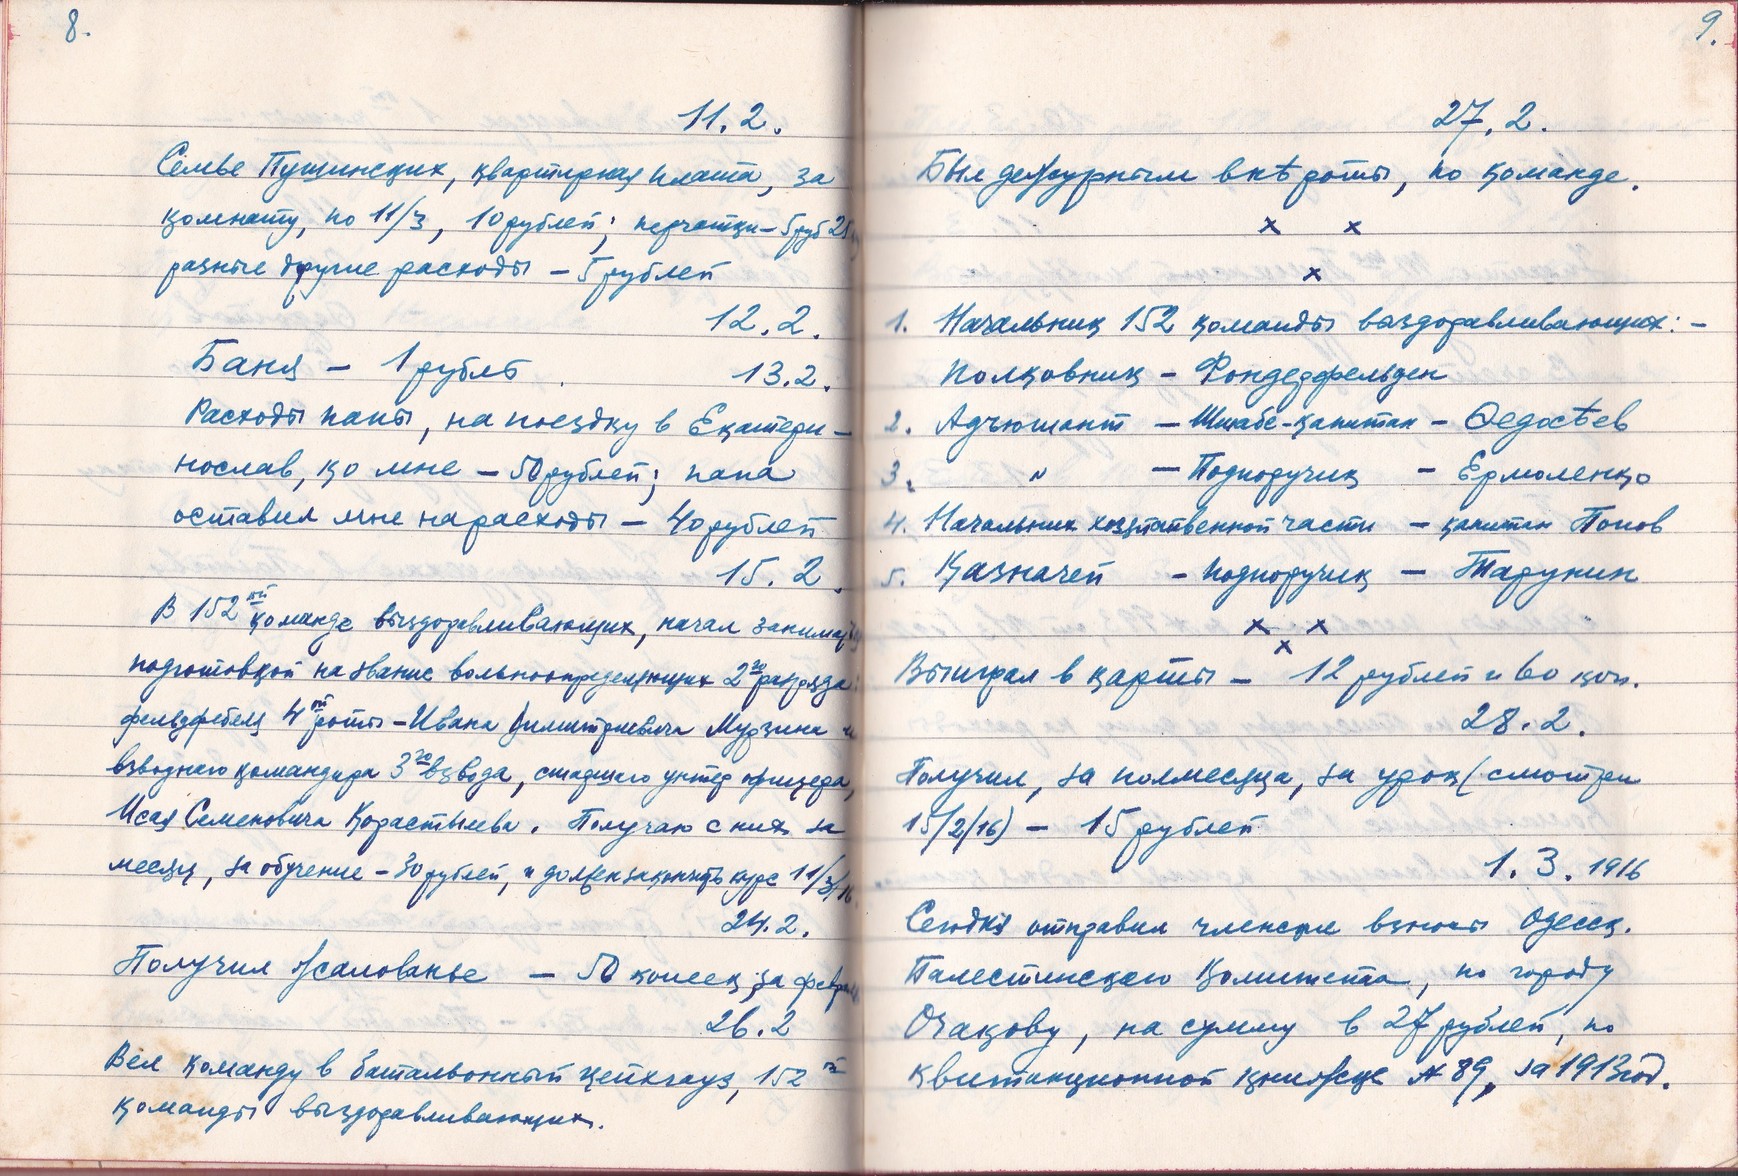 8.
11.2.
Семье Пущинских, квартирная плата, за
комнату, по 11/3, 10 рублей; перчатки – 5 руб 25
разные другие расходы – 5 рублей
12.2.
Баня – 1 рубль
13.2.
Расходы папы, на поездку в Екатери-
нослав, ко мне – 50 рублей; папа
оставил мне на расходы – 40 рублей
15.2.
В 152ой команде выздоравливающих, начал
подготовкой на звание вольноопределяющих 2го разряда:
фельдфебеля 4ой роты – Ивана Димитриевича Мурзина и
взводного командира 3го взвода, старшего унтер офицера,
Исая Семеновича Корастылева. Получаю с них за
месяц, за обучение – 30 рублей, и должен закончить курс 11/3/16.
24.2.
Получил жалованье – 50 копеек, за
26.2
Вел команду в батальонный цейхгауз, 152ой
команды выздоравливающих.
9.
27.2.
Был дежурным роты, по команде.
x x
x
1. Начальник 152 команды выздоравливающих: –
Полковник – Фондерфельден
2. Адъютант – Штабс-капитан – Ѳедосѣев
3. " – Подпоручик – Ермоленко
4. Начальник хозяйственной части – капитан Попов
5. Казначей – подпоручик – Тарунин
x x
x
Выиграл в карты – 12 рублей и 60 коп.
28.2.
Получил, за полмесяца, за урок (смотри
15/2/16) – 15 рублей
1.3.1916
Сегодня отправил членские взносы Одесск.
Палестинского Комитета, по городу
Очакову, на сумму в 27 рублей, по
квитанционной книжке № 89, за 1913 год.